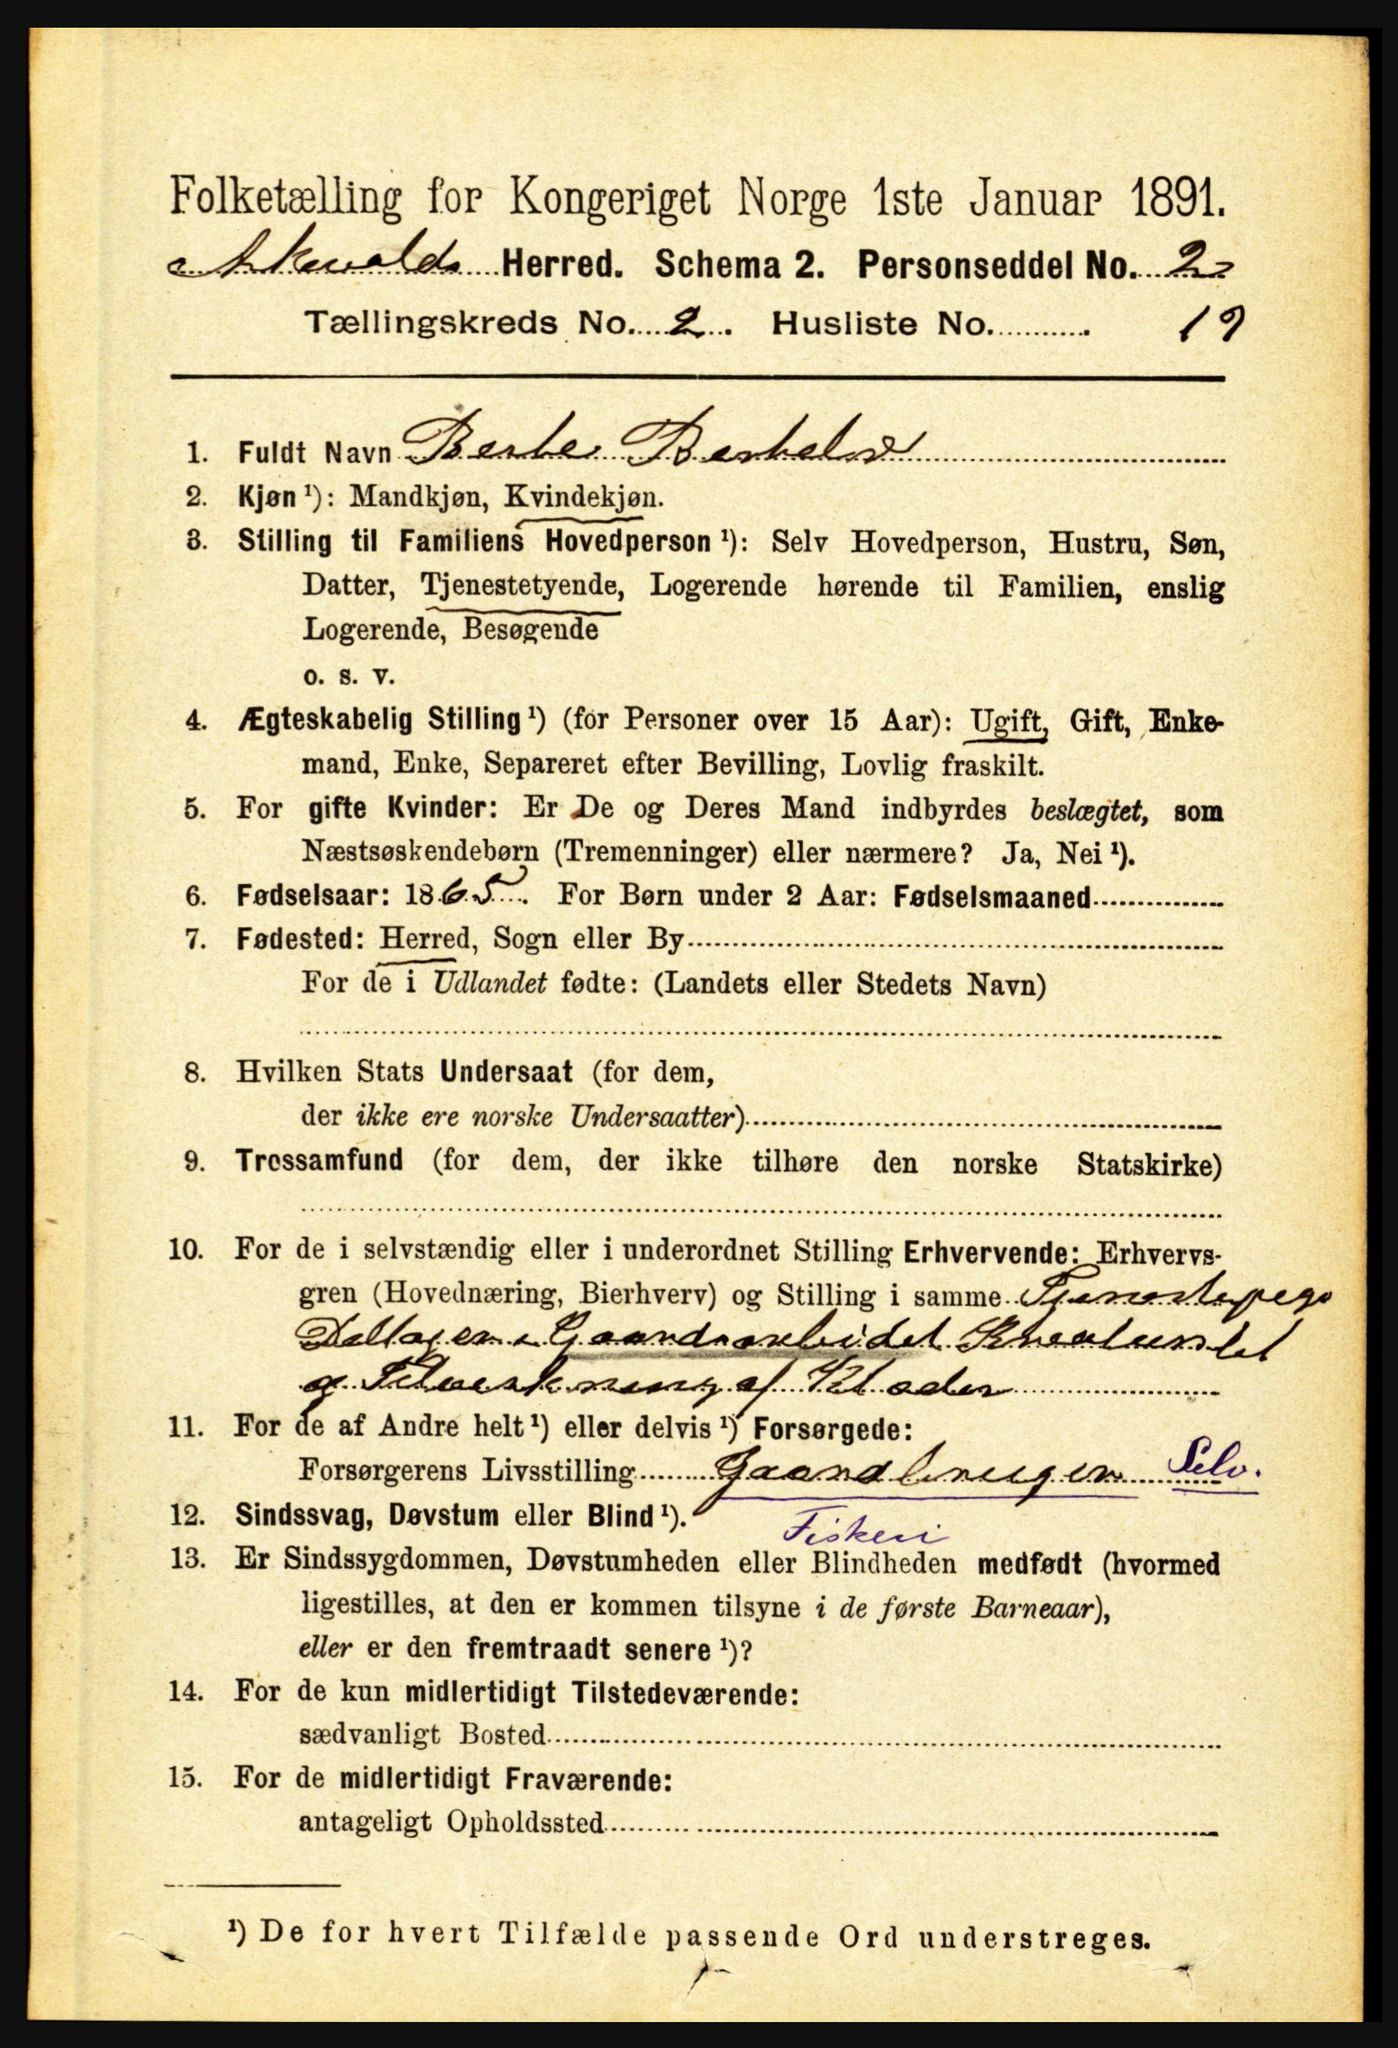 Folketælling for Kongeriget Norge 1ste Januar 1891.
Askvolds Herred. Schema 2. Personseddel No. 2
Tællingskreds No. 2. Husliste No. 19
1. Fuldt Navn Berte Bertels
2. Kjøn ¹): Mandkjøn, Kvindekjøn.
3. Stilling til Familiens Hovedperson ¹): Selv Hovedperson, Hustru, Søn,
Datter, Tjenestetyende, Logerende hørende til Familien, enslig
Logerende, Besøgende
o. s. v.
4. Ægteskabelig Stilling ¹) (for Personer over 15 Aar): Ugift, Gift, Enke-
mand, Enke, Separeret efter Bevilling, Lovlig fraskilt.
5. For gifte Kvinder: Er De og Deres Mand indbyrdes beslægtet, som
Næstsøskendebørn (Tremenninger) eller nærmere? Ja, Nei ¹).
6. Fødselsaar: 1865. For Børn under 2 Aar: Fødselsmaaned
7. Fødested: Herred, Sogn eller By
For de i Udlandet fødte: (Landets eller Stedets Navn)
8. Hvilken Stats Undersaat (for dem,
der ikke ere norske Undersaatter)
9. Trossamfund (for dem, der ikke tilhøre den norske Statskirke)
10. For de i selvstændig eller i underordnet Stilling Erhvervende: Erhvervs-
gren (Hovednæring, Bierhverv) og Stilling i samme Tjenestepege
Deltager i Gaardsarbeidet Kreaturstel
og Tilvirkning af Klæder
11. For de af Andre helt ¹) eller delvis ¹) Forsørgede:
Forsørgerens Livsstilling Gaardbruger Selv.
12. Sindssvag, Døvstum eller Blind ¹).
Fiskeri
13. Er Sindssygdommen, Døvstumheden eller Blindheden medfødt (hvormed
ligestilles, at den er kommen tilsyne i de første Barneaar),
eller er den fremtraadt senere ¹)?
14. For de kun midlertidigt Tilstedeværende:
sædvanligt Bosted
15. For de midlertidigt Fraværende:
antageligt Opholdssted
¹) De for hvert Tilfælde passende Ord understreges.